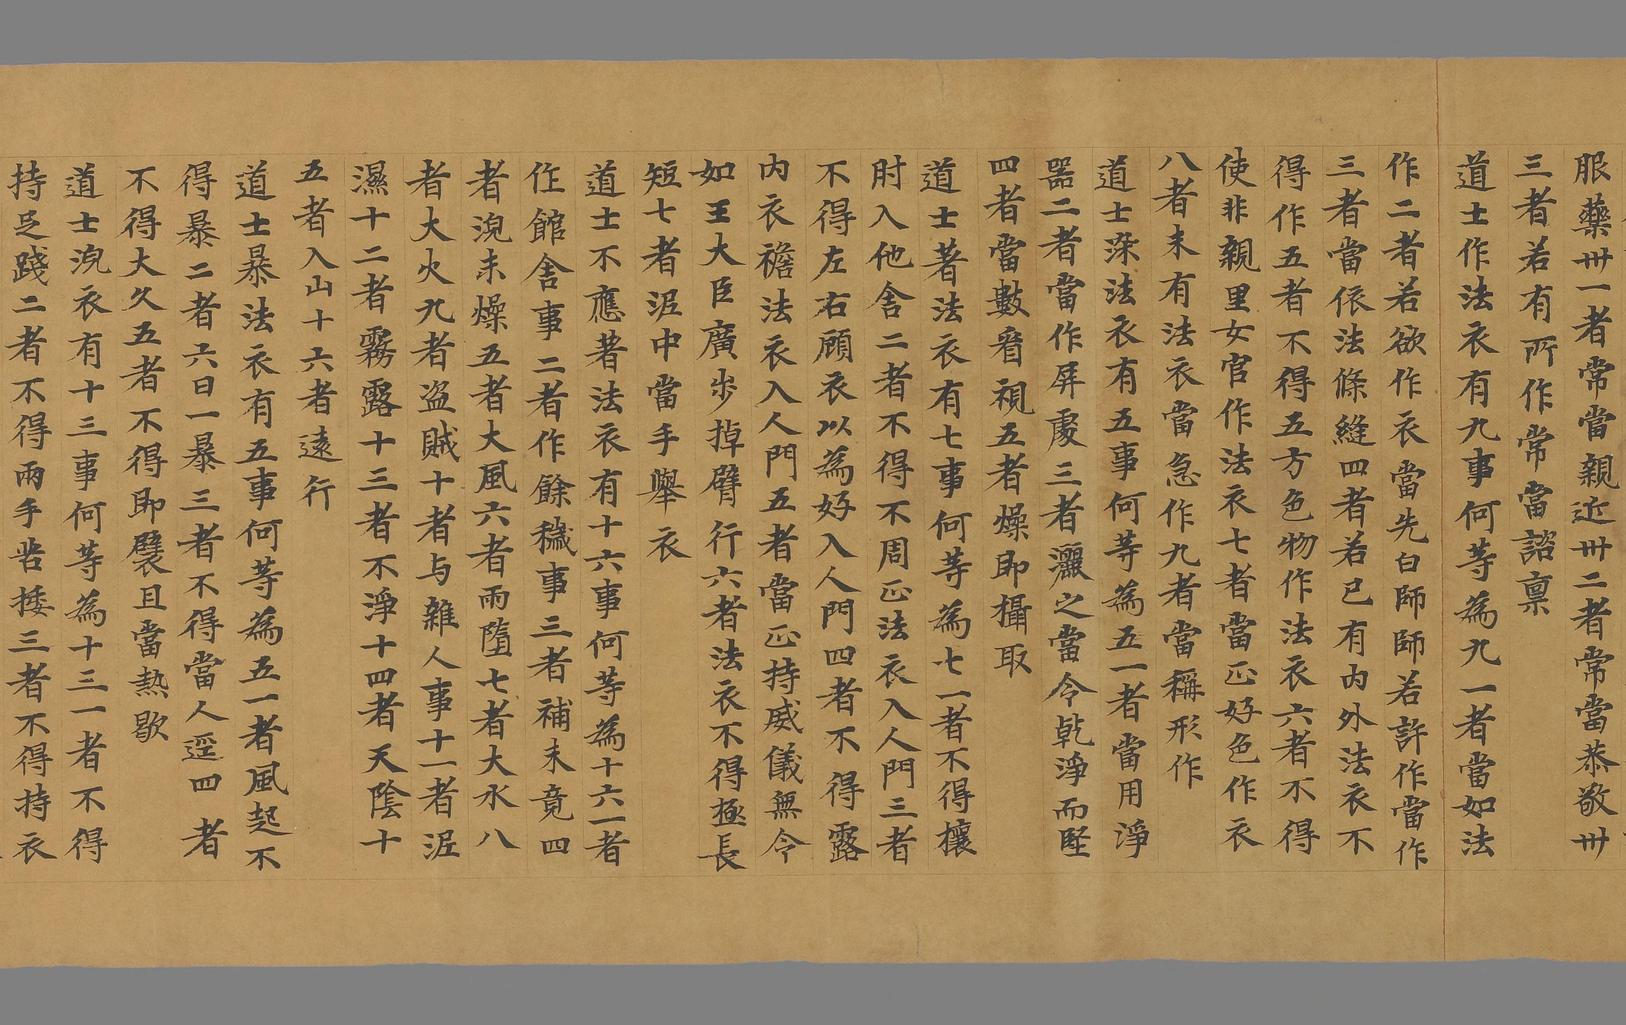 服藥卅一者常當親近卅二者常當恭敬卅
三者若有所作常當諮稟
道士作法衣有九事何等為九一者當如法
作二者若欲作衣當先白師師若許作當作
三者當依法條縫四者若已有内外法衣不
得作五者不得五方色物作法衣六者不得
使非親里女官作法衣七者當正好色作衣
八者未有法衣當急作九者當稱形作
道士染法衣有五事何等為五一者當用淨
器二者當作屏處三者灑之當令乾淨而堅
四者當數看視五者燥即攝取
道士著法衣有七事何等為七一者不得攘
肘入他舍二者不得不周正法衣入人門三者
不得左右顧衣以為好入人門四者不得露
内衣襜法衣入人門五者當正持威儀無令
如王大臣廣步掉臂行六者法衣不得極長
短七者泥中當手舉衣
道士不應著法衣有十六事何等為十六一者
作館舍事二者作餘穢事三者補未竟四
者浣未燥五者大風六者雨墮七者大水八
者大火九者盜賊十者与雜人事十一者泥
濕十二者霧露十三者不淨十四者天陰十
五者入山十六者遠行
道士暴法衣有五事何等為五一者風起不
得暴二者六日一暴三者不得當人逕四者
不得大久五者不得即襞且當熱歇
道士浣衣有十三事何等為十三一者不得
持足踐二者不得兩手捼三者不得持衣